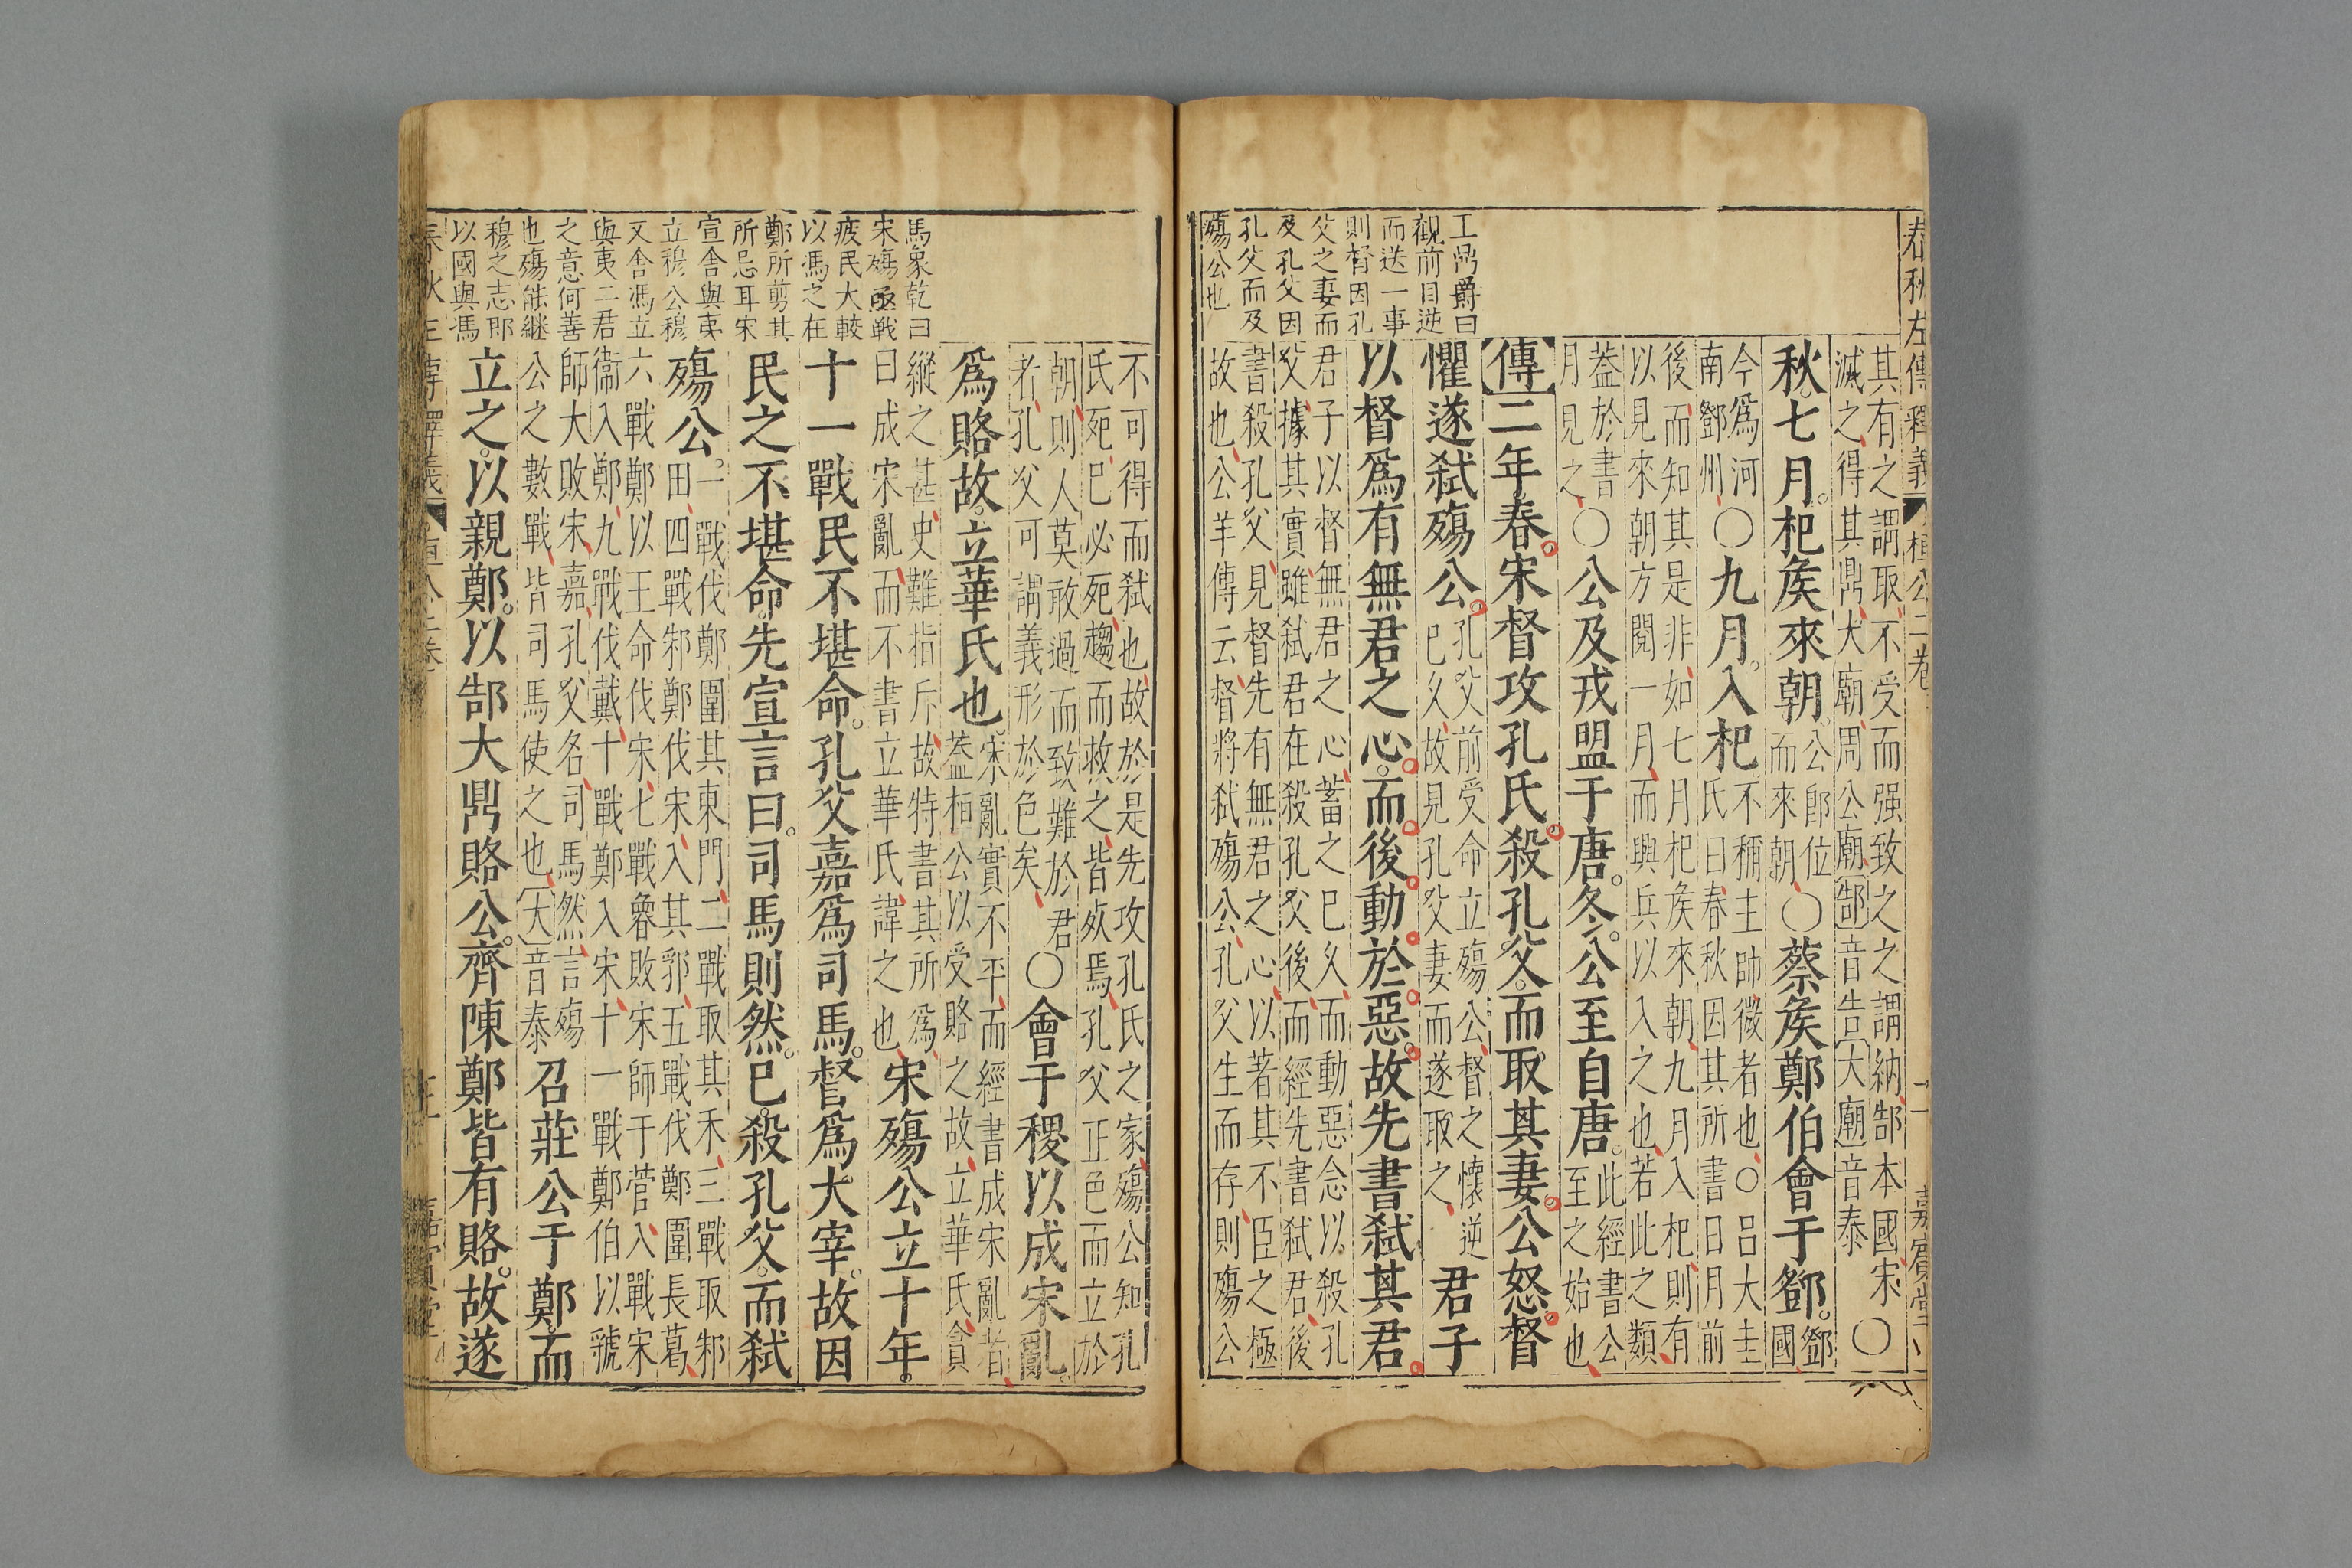 春秋左傳釋義 桓公二卷 嘉賓堂
工鼎爵曰
觀前目逆
而送一事
則督因孔
父之妻而
及孔父因
孔父而及
殤公也
其有之謂取不受而强致之之謂納郜本國宋〇
滅之得其鼎大廟周公廟郜音告大廟音泰
秋七月杞矦來朝公卽位而來朝〇蔡矦鄭伯會于鄧鄧國
今爲河南鄧州〇九月入杞不稱主帥微者也〇呂大圭氏曰春秋因其所書日月前
後而知其是非如七月杞矦來朝九月入杞則有
以見來朝方閱一月而興兵以入之也若此之類
蓋於書月見之〇公及戎盟于唐冬公至自唐此經書公至之始也
傳二年春宋督攻孔氏殺孔父而取其妻公怒督
懼遂弑殤公孔父前受命立殤公督之懷逆已久故見孔父妻而遂取之君子
以督爲有無君之心而後動於惡故先書弑其君
君子以督無君之心蓄之已久而動惡念以殺孔
父據其實雖弑君在殺孔父後而經先書弑君後
書殺孔父見督先有無君之心以著其不臣之極
故也公羊傳云督將弑殤公孔父生而存則殤公
不可得而弑也故於是先攻孔氏之家殤公知孔
氏死已必死趨而救之皆死焉孔父正色而立於
朝則人莫敢過而致難於君
者孔父可謂義形於色矣〇會于稷以成宋亂
爲賂故立華氏也宋亂實不平而經書成宋亂者蓋桓公以受賂之故立華氏貪
縱之甚史難指斥故特書其所爲
曰成宋亂而不書立華氏諱之也宋殤公立十年
十一戰民不堪命孔父嘉爲司馬督爲大宰故因
民之不堪命先宣言曰司馬則然已殺孔父而弑
殤公一戰伐鄭圍其東門二戰取其禾三戰取邾田四戰邾鄭伐宋入其郛五戰伐鄭圍長葛
六戰鄭以王命伐宋七戰魯敗宋師于菅入戰宋
衞入鄭九戰伐戴十戰鄭入宋十一戰鄭伯以虢
師大敗宋嘉孔父名司馬然言殤
公之數戰皆司馬使之也大音泰召莊公于鄭而
立之以親鄭以郜大鼎賂公齊陳鄭皆有賂故遂
馬象乾曰
宋殤亟戰
疲民大較
以馮之在
鄭所剪其
所忌耳宋
宣舍與夷
立穆公穆
又舍馮立
與夷二君
之意何善
也殤能繼
穆之志卽
以國與馮